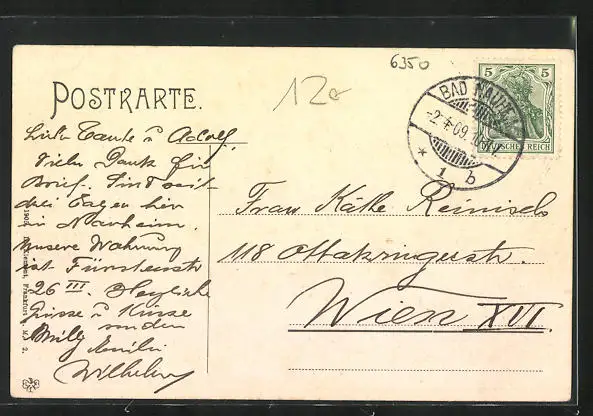 6350
12
POSTKARTE.
BAD NAUH
-2.4.09.
* 1 b
5 5
DEUTSCHES REICH
Liebe Tante u Adolf.
Vielen Dank für
Brief. Sind seit
drei Tagen hier
in Nauheim.
Unsere Wohnung
ist Fürstenstr
26 III. Herzliche
Grüsse u Küsse
von den
Emilie
Wilhelm
Frau Käthe Reinisch
118 Ottakringerstr.
Wien XVI.
Frankfurt a. M. 2.